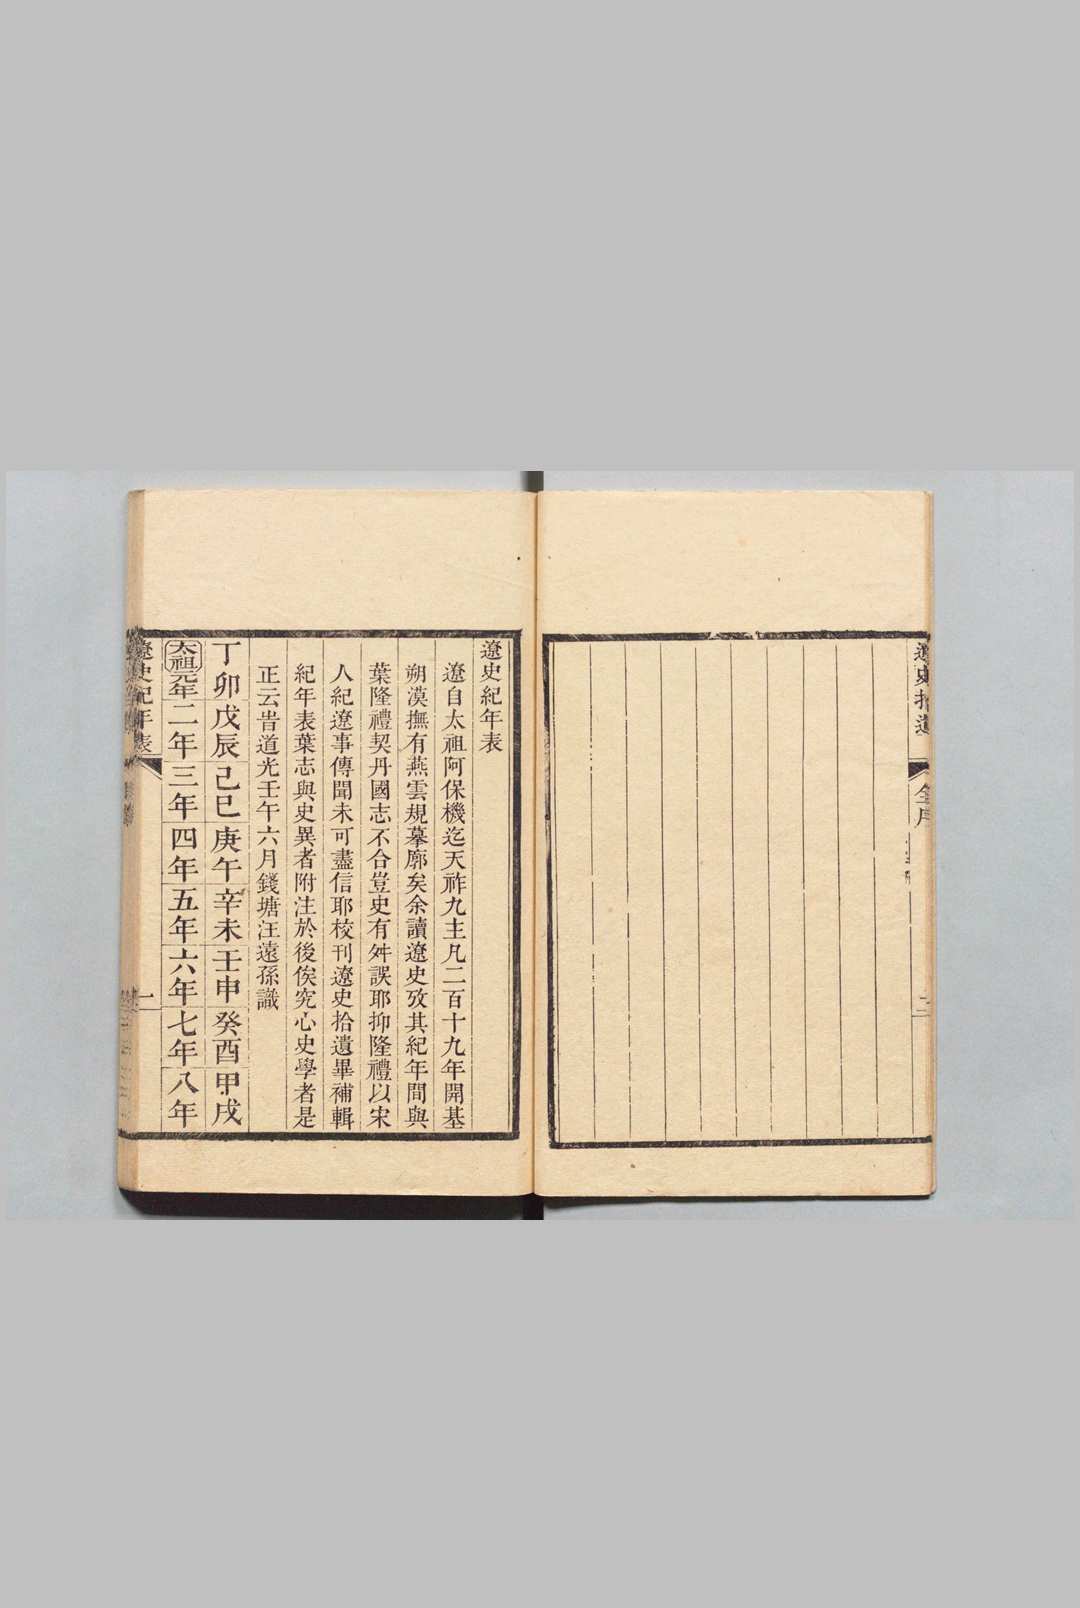 遼史拾遺
全序
遼史紀年表
遼自太祖阿保機迄天祚九主凡二百十九年開基
朔漠撫有燕雲規摹廓矣余讀遼史攷其紀年間與
葉隆禮契丹國志不合豈史有舛誤耶抑隆禮以宋
人紀遼事傳聞未可盡信耶校刊遼史拾遺畢補輯
紀年表葉志與史異者附注於後俟究心史學者是
正云旹道光壬午六月錢塘汪遠孫識
丁卯戊辰己巳庚午辛未壬申癸酉甲戌
太祖元年二年三年四年五年六年七年八年
遼史紀年表
一